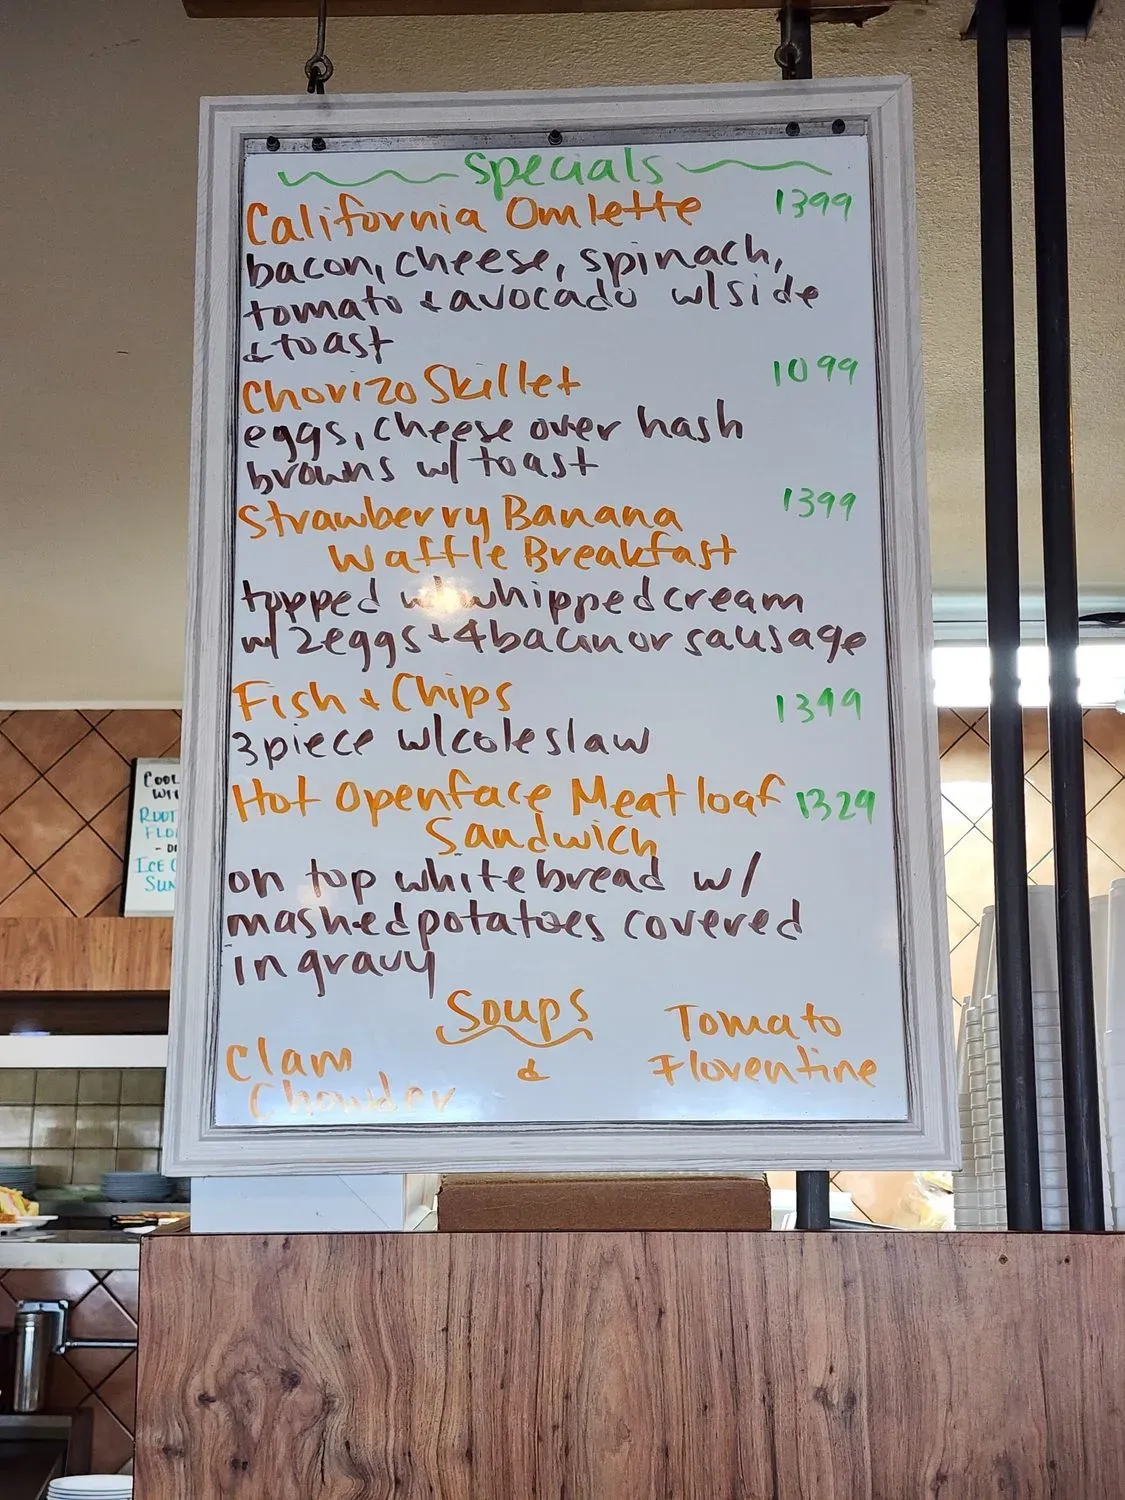 Specials
California Omlette 1399
bacon, cheese, spinach,
tomato & avocado w/side
& toast
Chorizo Skillet 1099
eggs, cheese over hash
browns w/ toast
Strawberry Banana 1399
Waffle Breakfast
topped w/ whipped cream
w/ 2 eggs + 4 bacon or sausage
Fish & Chips 1399
3 piece w/coleslaw
Hot Openface Meatloaf 1329
Sandwich
on top white bread w/
mashed potatoes covered
in gravy
Soups
Clam
Chowder
&
Tomato
Florentine
COOL
ICE